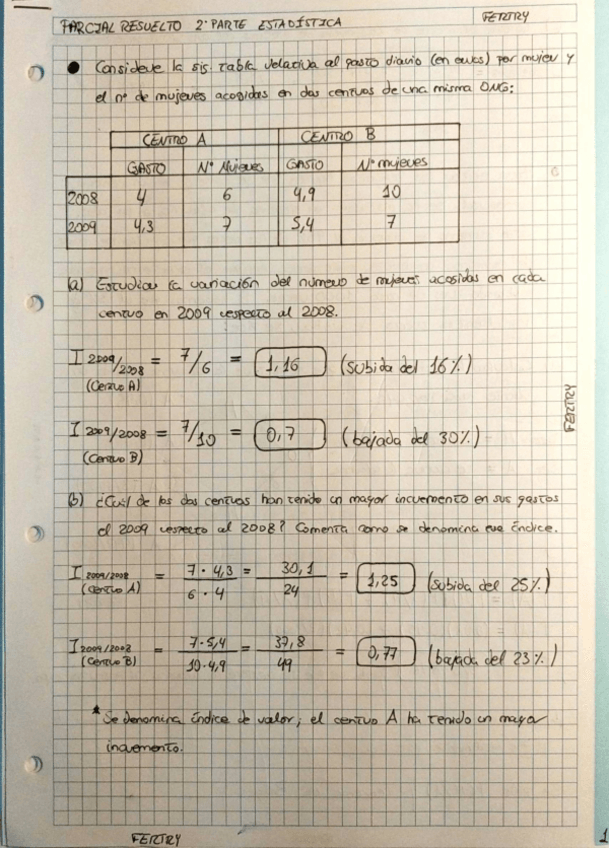 PARCIAL RESUELTO 2ª PARTE ESTADÍSTICA
FERTRY
● Considere la sig. tabla relativa al gasto diario (en euros) por mujer y
el nº de mujeres acogidas en dos centros de una misma ONG:
CENTRO A CENTRO B
GASTO Nº Mujeres GASTO Nº mujeres
2008 4 6 4,9 10
2009 4,3 7 5,4 7
(a) Estudiar la variación del número de mujeres acogidas en cada
centro en 2009 respecto al 2008.
I 2009/2008 = 7/6 = 1,16 (subida del 16%)
(Centro A)
FERTRY
I 2009/2008 = 7/10 = 0,7 (bajada del 30%)
(Centro B)
(b) ¿Cuál de los dos centros han tenido un mayor incremento en sus gastos
el 2009 respecto al 2008? Comenta como se denomina ese índice.
I 2009/2008 = 7·4,3 / 6·4 = 30,1 / 24 = 1,25 (subida del 25%)
(Centro A)
I 2009/2008 = 7·5,4 / 10·4,9 = 37,8 / 49 = 0,77 (bajada del 23%)
(Centro B)
* Se denomina índice de valor; el centro A ha tenido un mayor
incremento.
FERTRY
1